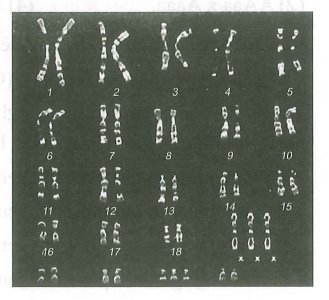 1 2 3 4 5
6 7 8 9 10
11 12 13 14 15
16 17 18 x x x